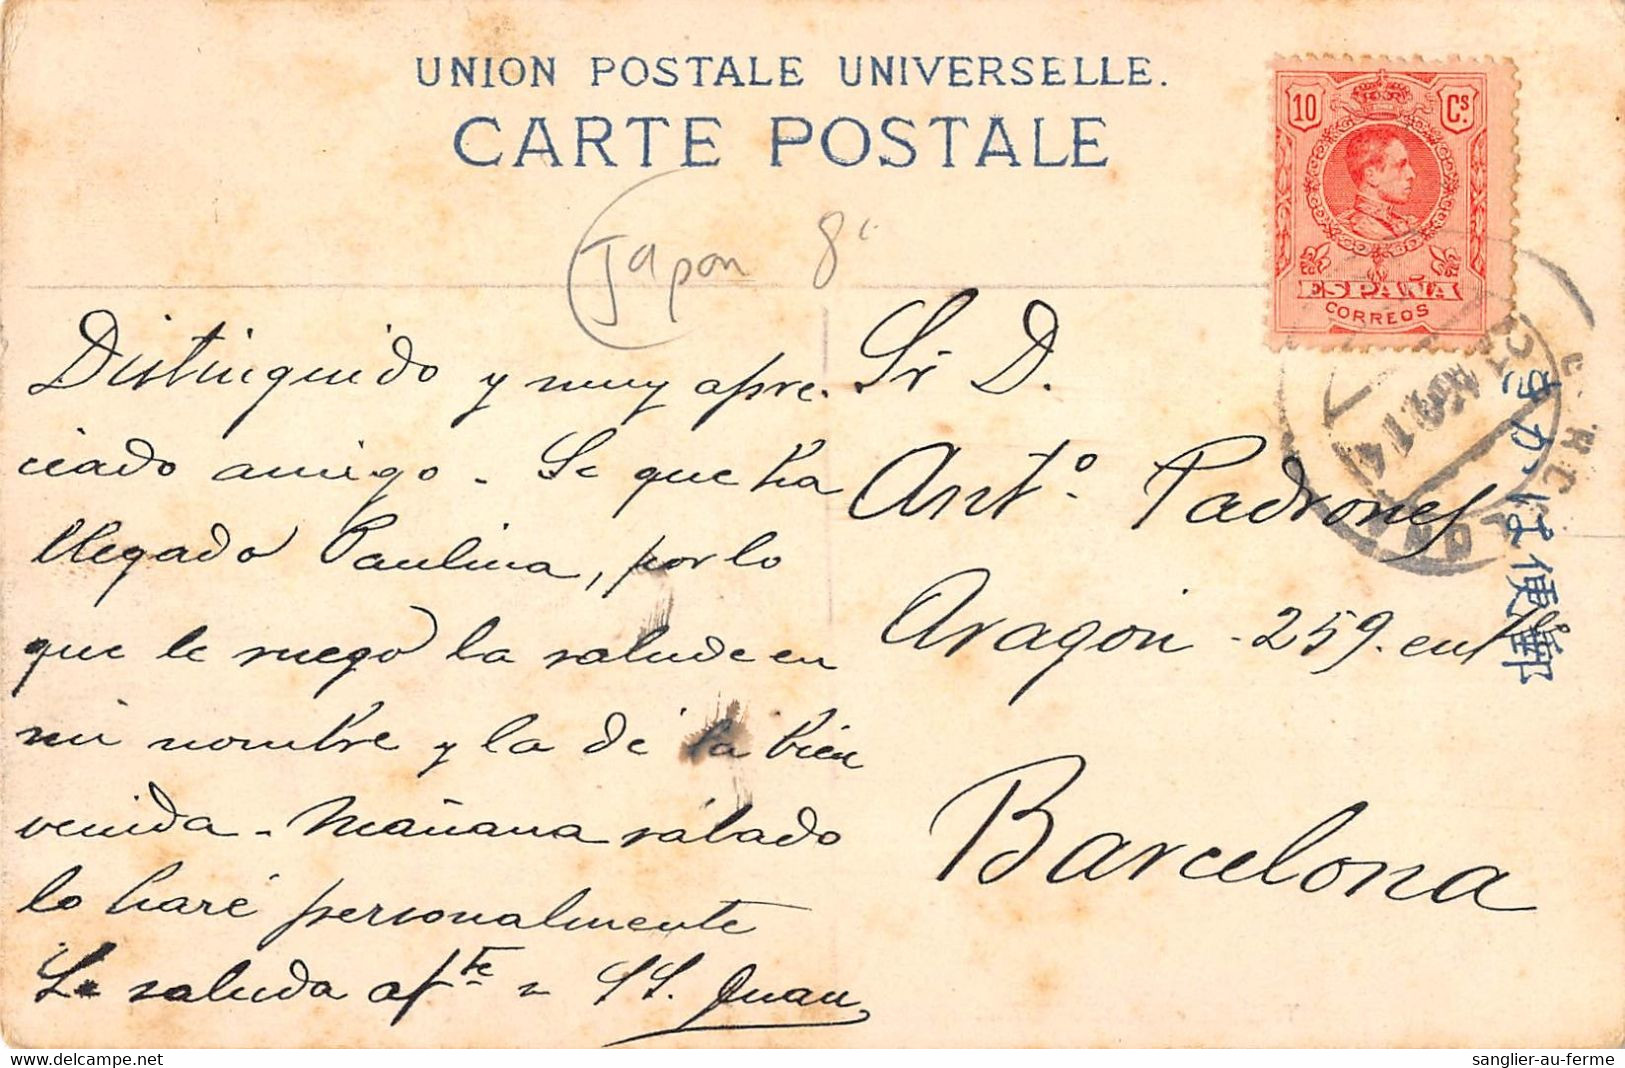 UNION POSTALE UNIVERSELLE.
CARTE POSTALE
10 Cs.
ESPAÑA
CORREOS
Japon 8
Distinguido y muy apre-
ciado amigo. Se que ha
llegado Paulina, por lo
que le ruego la salude en
mi nombre y la dé la bien
venida. Mañana sábado
lo haré personalmente
Le saluda afte
SS. Juan
Sr D.
Antº. Padrones
Aragón - 259. entlº
Barcelona
きかは便郵
AGO 14
delcampe.net
sanglier-au-ferme